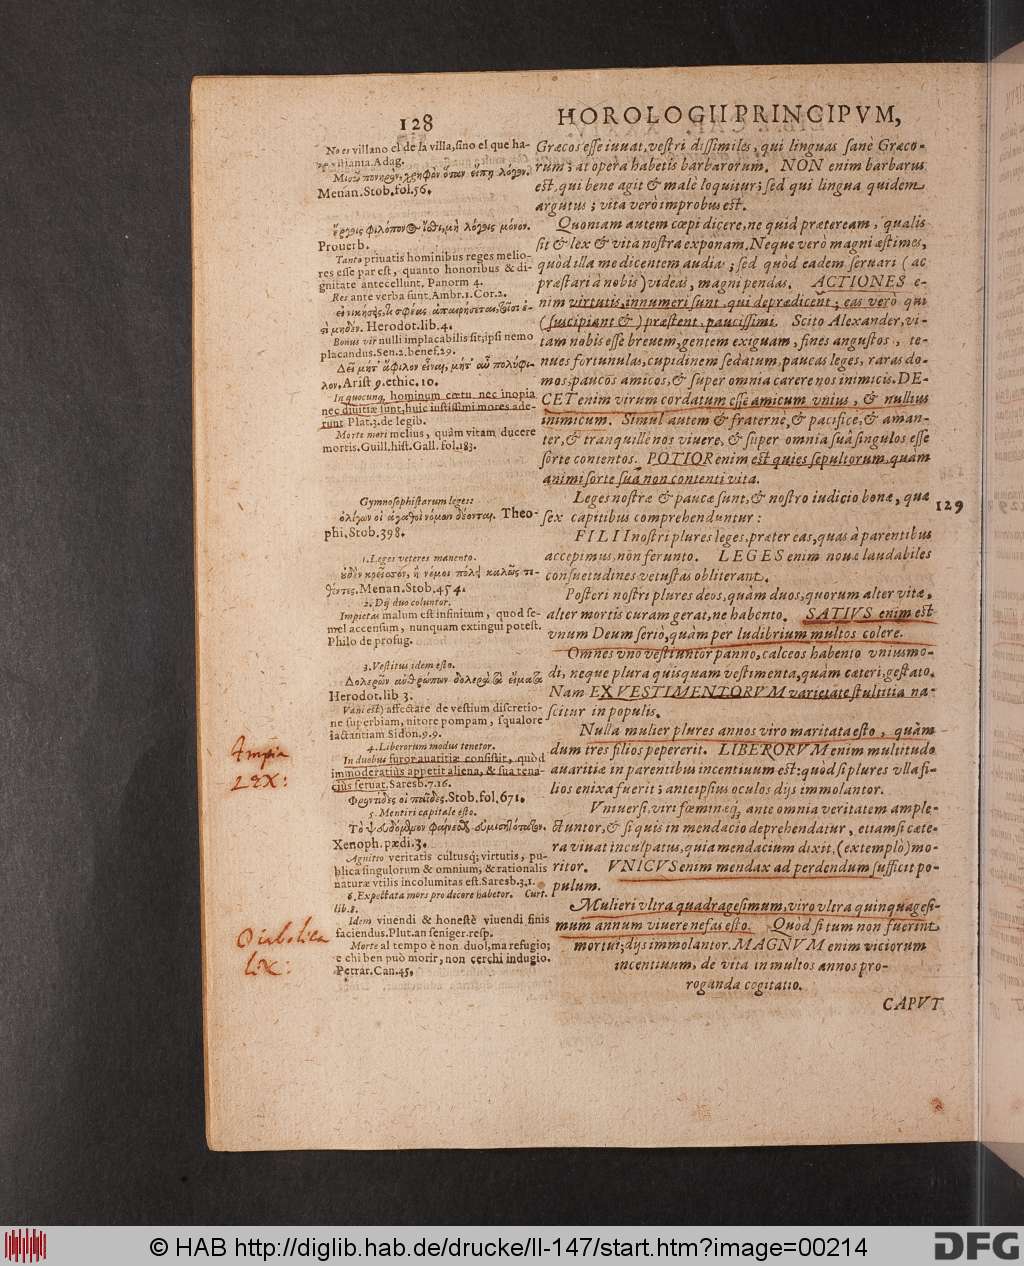 128
HOROLOGII PRINCIPVM,
No es villano el de la villa, sino el que ha-
Adag.
Μισῶ πονηρὸν, χρηστὸν ὅταν εἴπῃ λόγον.
Menan. Stob. fol. 56.
ἔργοις φιλόπονος ἴσθι, μὴ λόγοις μόνον.
Prouerb.
Tanto priuatis hominibus reges melio-
res esse par est, quanto honoribus & di-
gnitate antecellunt. Panorm 4.
Res ante verba sunt. Ambr. 1. Cor. 2.
Herodot. lib. 4.
Bonus vir nulli implacabilis sit; ipsi nemo
placandus. Sen. 2. benef. 29.
Δεῖ μήτ' ἄφιλον εἶναι, μήτ' αὖ πολύφι-
λον. Arist 9. ethic. 10.
In quocunq; hominum cœtu nec inopia
nec diuitiæ sunt, huic iustissimi mores ade-
runt Plat. 3. de legib.
Morte meri melius, quàm vitam ducere
mortis. Guill. hist. Gall. fol. 183.
Gymnosophistarum leges:
ὀλίγων οἱ ἀγαθοὶ νόμων δέονται. Theo-
phi. Stob. 398.
1. Leges veteres manento.
οὐδὲν κρεῖσσον, ἢ νόμοι πόλει καλῶς τε-
θέντες. Menan. Stob. 454.
2. Dij duo coluntor.
Impietas malum est infinitum, quod se-
mel accensum, nunquam extingui potest.
Philo de profug.
3. Vestitus idem esto.
Δολερῶν ἀνθρώπων δολερὰ τὰ εἵματα
Herodot. lib 3.
Vani est) affectare de vestium discretio-
ne superbiam, nitore pompam, squalore
iactantiam Sidon. 9. 9.
4. Liberorum modus tenetor.
In duobus furor auaritiæ consistit, quòd
immoderatius appetit aliena, & sua tena-
cius seruat. Saresb. 7. 16.
Φροντίδες οἱ παῖδες. Stob. fol. 671.
5. Mentiri capitale esto.
Xenoph. pædi. 3.
Agnitio veritatis cultusq; virtutis, pu-
blica singulorum & omnium, & rationalis
naturæ vtilis incolumitas est. Saresb. 3, 1.
6. Expectata mors pro decore habetor. Curt.
lib. 8.
Idem viuendi & honestè viuendi finis
faciendus. Plut. an seni ger. resp.
Morte al tempo è non duol, ma refugio;
e chi ben può morir, non cerchi indugio.
Petrar. Can. 45.
Græcos esse iuuat, vestri dissimiles, qui linguas sanè Græco-
rum; at opera habetis barbarorum. NON enim barbarus
est, qui bene agit & malè loquitur; sed qui lingua quidem
argutus; vita verò improbus est.
Quoniam autem cœpi dicere, ne quid præteream, qualis
sit & lex & vita nostra exponam. Neque verò magni æstimes,
quòd illa me dicentem audias; sed quòd eadem seruari (ac
præstari à nobis) videas, magni pendas. ACTIONES e-
nim virtutis, innumeri sunt, qui deprædicent; eas verò qui
(suscipiant &) præstent, paucissimi. Scito Alexander, vi-
tam nobis esse breuem, gentem exiguam, fines angustos, te-
nues fortunulas, cupidinem sedatum, paucas leges, raras do-
mos, paucos amicos, & super omnia carere nos inimicis. DE-
CET enim virum cordatum esse amicum vnius, & nullius
inimicum. Simul autem & fraternè, & pacificè, & aman-
ter, & tranquillè nos viuere, & super omnia suâ singulos esse
sorte contentos. POTIOR enim est quies sepultorum, quam
animi sorte suâ non contenti vita.
Leges nostræ & paucæ sunt, & nostro iudicio bonæ, quæ
129
sex capitibus comprehenduntur:
FILII nostri plures leges, præter eas, quas à parentibus
accepimus, non ferunto. LEGES enim nouæ laudabiles
consuetudines vetustas obliterant.
Posteri nostri plures deos, quàm duos, quorum alter vitæ,
alter mortis curam gerat, ne habento. SATIVS enim est
vnum Deum serio, quàm per ludibrium multos colere.
Omnes vno vestiuntor panno, calceos habento vniusmo-
di, neque plura quisquam vestimenta, quàm cæteri, gestato.
Nam EX VESTIMENTORVM varietate stultitia na-
scitur in populis.
Nulla mulier plures annos viro maritata esto, quàm
dum tres filios pepererit. LIBERORVM enim multitudo
auaritiæ in parentibus incentiuum est: quòd si plures vlla fi-
lios enixa fuerit; ante ipsius oculos dijs immolantor.
Vniuersi, viri fœminæq; ante omnia veritatem ample-
ctuntor, & si quis in mendacio deprehendatur, etiamsi cæte-
ra viuat inculpatus, quia mendacium dixit, (extemplo) mo-
ritor. VNICVS enim mendax ad perdendum sufficit po-
pulum.
Mulieri vltra quadragesimum, viro vltra quinquagesi-
mum annum viuere nefas esto. Quòd si tum non fuerint
mortui; dijs immolantor. MAGNVM enim viciorum
incentiuum, de vita in multos annos pro-
roganda cogitatio.
CAPVT
Impia
Lex:
Diabolica
Lex:
© HAB http://diglib.hab.de/drucke/li-147/start.htm?image=00214
DFG